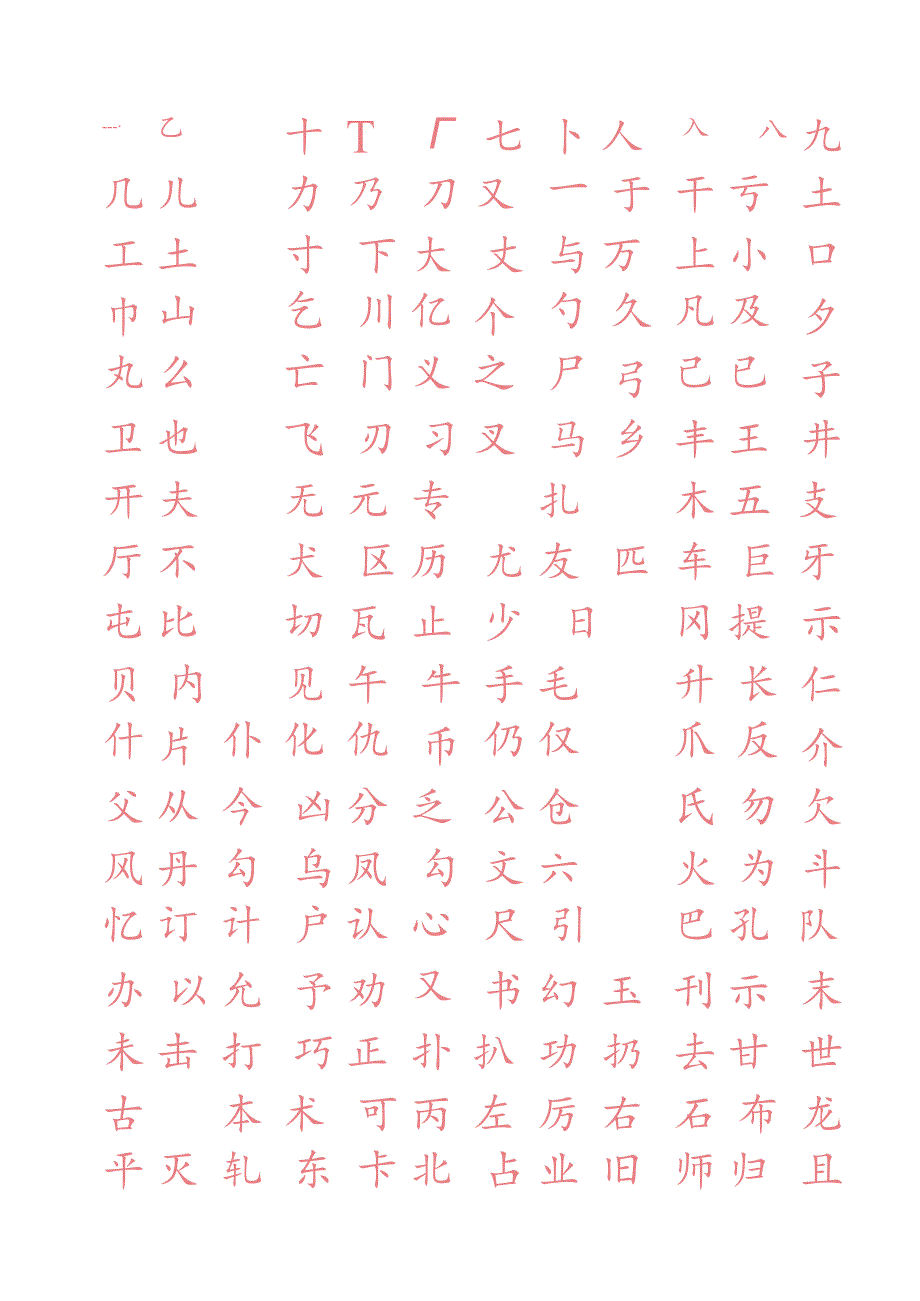 一 乙 十 T 厂 七 卜 人 入 八 九
几 儿 力 乃 刀 又 一 于 干 亏 土
工 土 寸 下 大 丈 与 万 上 小 口
巾 山 乞 川 亿 个 勺 久 凡 及 夕
丸 么 亡 门 义 之 尸 弓 己 已 子
卫 也 飞 刃 习 叉 马 乡 丰 王 井
开 夫 无 元 专 扎 木 五 支
厅 不 犬 区 历 尤 友 匹 车 巨 牙
屯 比 切 瓦 止 少 日 冈 提 示
贝 内 见 午 牛 手 毛 升 长 仁
什 片 仆 化 仇 币 仍 仅 爪 反 介
父 从 今 凶 分 乏 公 仓 氏 勿 欠
风 丹 勾 乌 凤 勾 文 六 火 为 斗
忆 订 计 户 认 心 尺 引 巴 孔 队
办 以 允 予 劝 又 书 幻 玉 刊 示 末
未 击 打 巧 正 扑 扒 功 扔 去 甘 世
古 本 术 可 丙 左 厉 右 石 布 龙
平 灭 轧 东 卡 北 占 业 旧 师 归 且